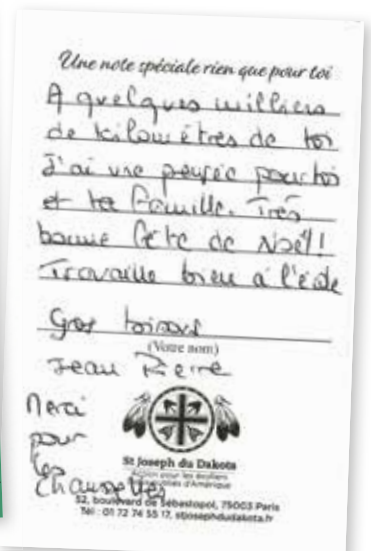 Une note spéciale rien que pour toi
A quelques milliers
de kilomètres de toi
J'ai une pensée pour toi
et ta famille. Très
bonne fête de Noël !
Travaille bien à l'école
Gros bisous
(Votre nom)
Jean Pierre
Merci
pour
les
chaussettes
St Joseph du Dakota
Action pour les écoliers
d'Amérique
52, boulevard de Sébastopol, 75003 Paris
Tél : 01 72 74 55 17, stjosephdudakota.fr